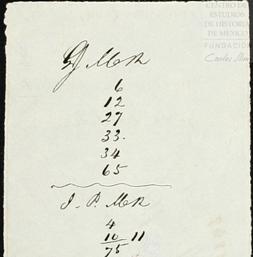 CENTRO DE
ESTUDIOS
DE HISTORIA
DE MEXICO
FUNDACIÓN
Carlos
6
12
27
33.
34
65
J. P. Mex
4
10 11
75